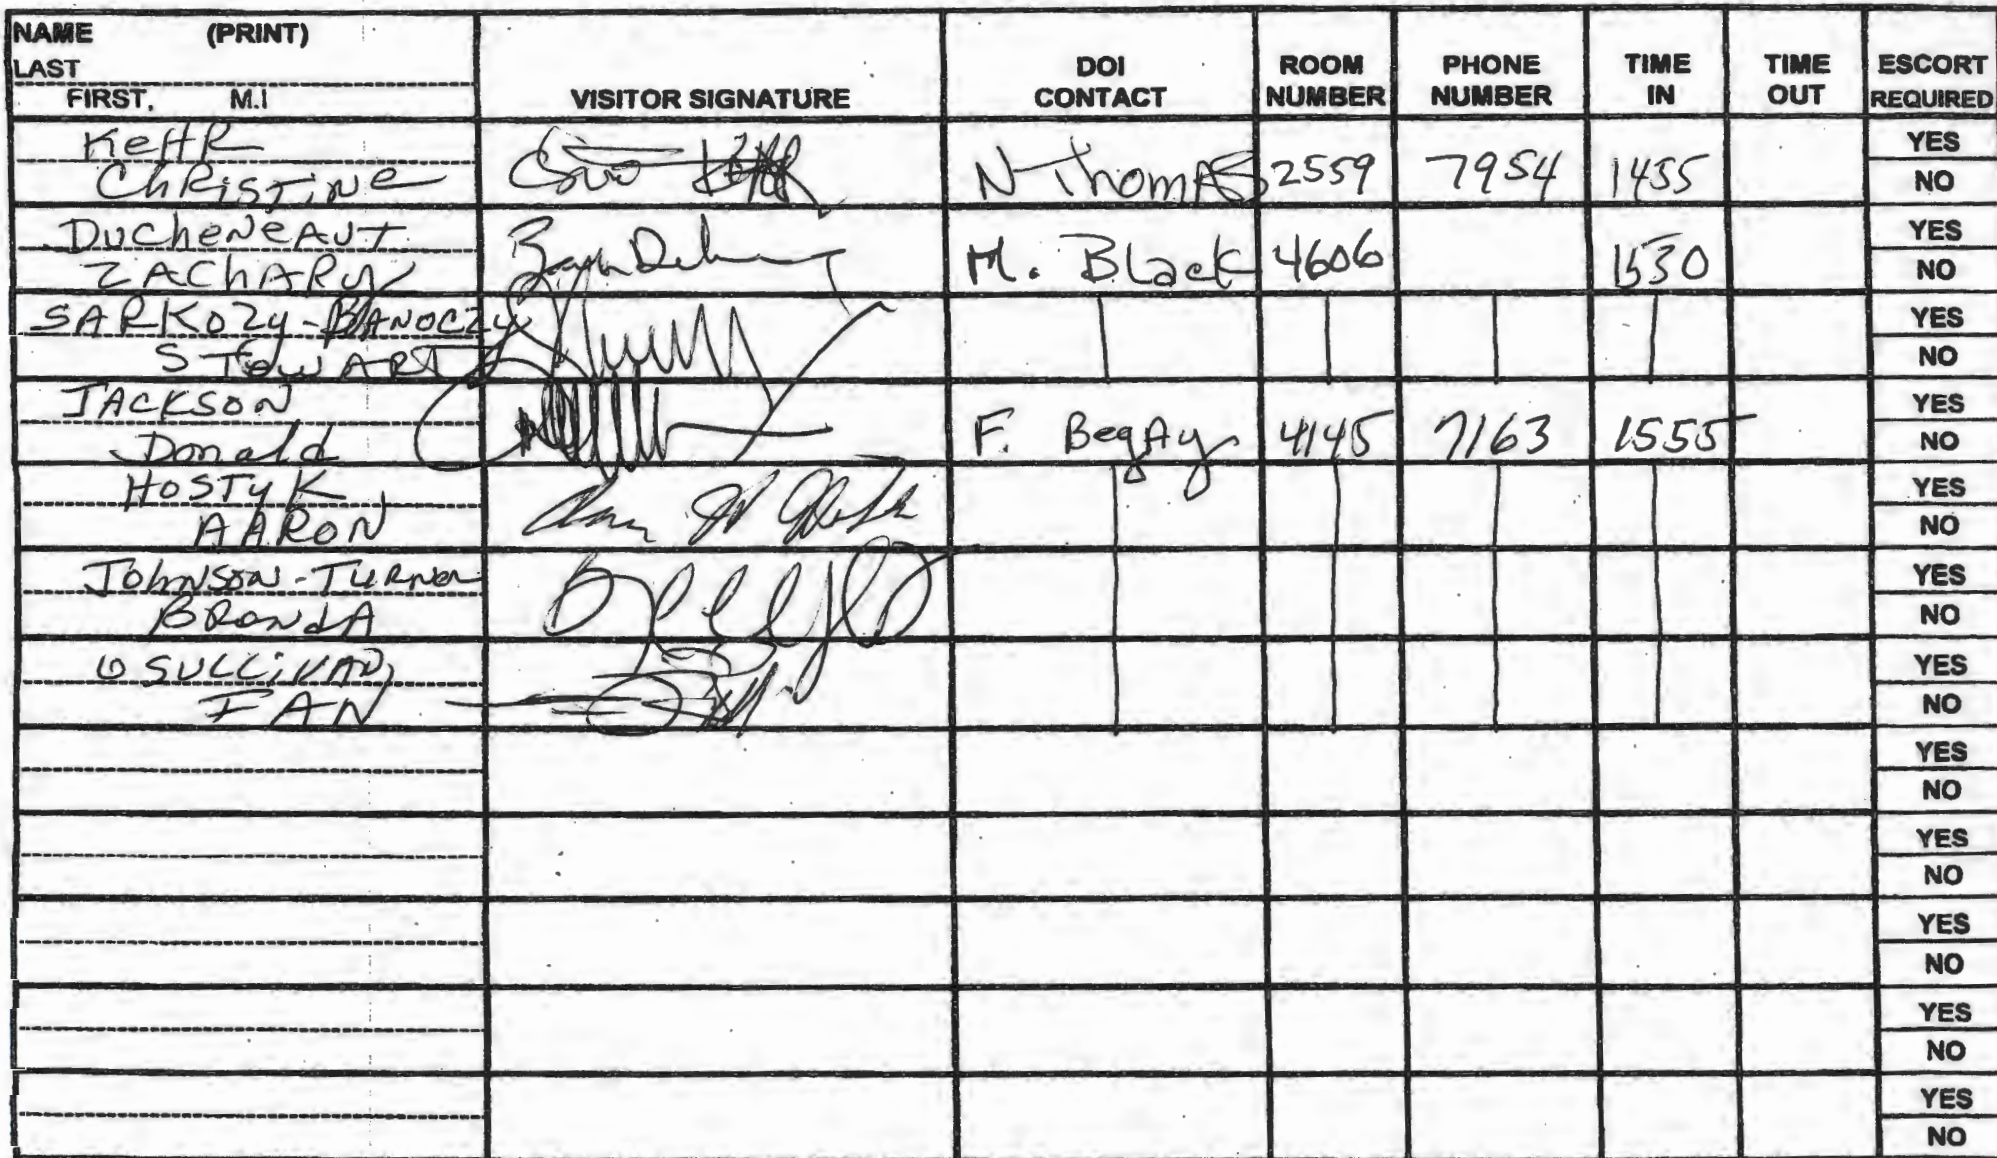 NAME (PRINT)
LAST
FIRST, M.I
VISITOR SIGNATURE
DOI CONTACT
ROOM NUMBER
PHONE NUMBER
TIME IN
TIME OUT
ESCORT REQUIRED
KeHR
ChRiSTiNe
N Thomas 2559 7954 1455
YES
NO
DucheNeAuT
ZAChARy
M. Black 4606 1530
YES
NO
SARKOZy-BANOCZY
STewART
YES
NO
JACKSON
Donald
F. BegAy 4145 7163 1555
YES
NO
HOSTyK
AARON
YES
NO
JohNSoN-TuRNer
BRendA
YES
NO
OSULLiVAN,
IAN
YES
NO
YES
NO
YES
NO
YES
NO
YES
NO
YES
NO